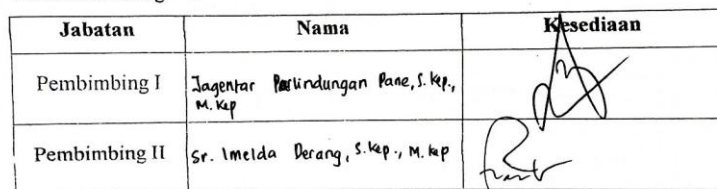 Jabatan Nama Kesediaan
Pembimbing I Jagentar Parlindungan Pane, S.Kep.,
M.Kep
Pembimbing II Sr. Imelda Derang, S.Kep., M.Kep